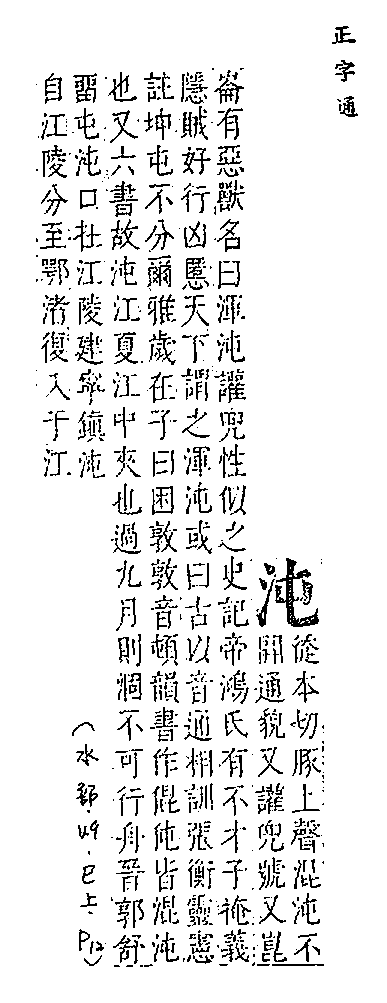 正字通
沌
徒本切豚上聲混沌不
開通貌又讙兜號又崑
崙有惡獸名曰渾沌讙兜性似之史記帝鴻氏有不才子掩義
隱賊好行凶慝天下謂之渾沌或曰古以音通相訓張衡靈憲
註坤屯不分爾雅歲在子曰困敦敦音頓韻書作倱伅皆混沌
也又六書故沌江夏江中夾也過九月則涸不可行舟晉郭舒
畱屯沌口在江陵建寧鎮沌
自江陵分至鄂渚復入于江
(水部.49.巳上.P12)